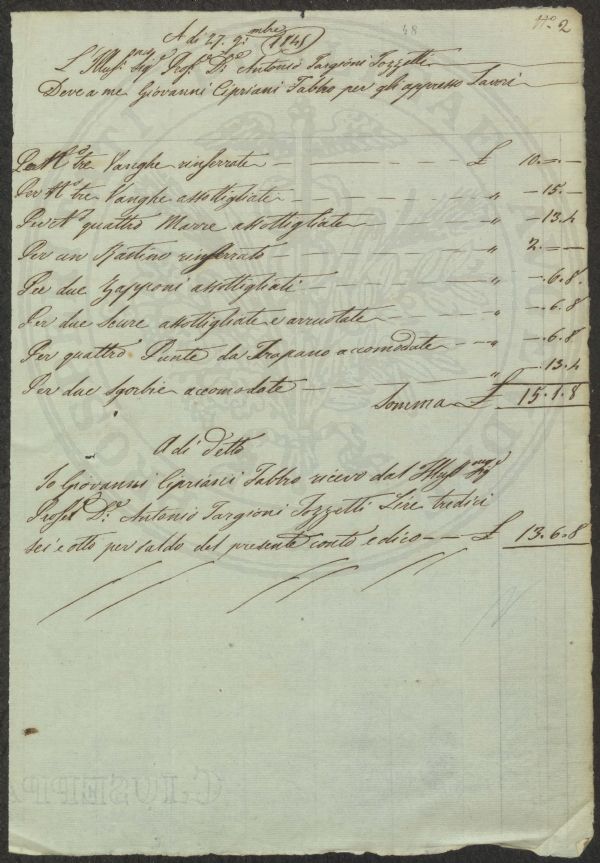 No. 2
48
A di 27. 9.mbre 1845
L'Illus.mo Sig.r Prof.r D.r Antonio Targioni Tozzetti
Deve a me Giovanni Cipriani Fabbro per gli appresso Lavori
Per No. tre Vanghe rinferrate £ 10.=.—
Per No. tre Vanghe assottigliate " —15.—
Per No. quattro Marre assottigliate " —13.4
Per un Rastino rinferrato " 2.——
Per due Zapponi assottigliati " —.6.8.
Per due Scure assottigliate e arruotate " —6.8
Per quattro Punte da Trapano accomodate " —.6.8
Per due Sgorbie accomodate " —.13.4
Somma £ 15.1.8
A di detto
Io Giovanni Cipriani Fabbro ricevo dal Illus.mo Sig.r
Profes.r D.r Antonio Targioni Tozzetti Lire tredici
sei e otto per saldo del presente conto e dico £ 13.6.8
GIUSEPP